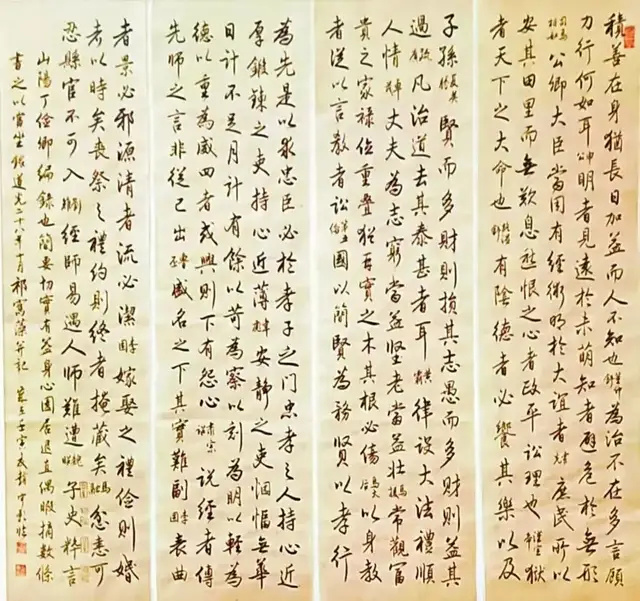 積善在身猶長日加益而人不知也 為治不在多言顧
力行何如耳 明者見遠於未萌知者避危於無形
公卿大臣當用有經術明於大誼者 庶民所以
安其田里而無歎息愁恨之心者政平訟理也 獄
者天下之大命也 有陰德者必饗其樂以及
子孫 賢而多財則損其志愚而多財則益其
過 凡治道去其泰甚者耳 律設大法禮順
人情 丈夫為志窮當益堅老當益壯 常觀富
貴之家祿位重疊猶再實之木其根必傷 以身教
者從以言教者訟 國以簡賢為務賢以孝行
為先是以求忠臣必於孝子之門忠孝之人持心近
厚鍛鍊之吏持心近薄 安靜之吏悃愊無華
日計不足月計有餘以苛為察以刻為明以輕為
德以重為威四者或興則下有怨心 說經者傳
先師之言非從己出 盛名之下其實難副 表曲
者景必邪源清者流必潔 嫁娶之禮儉則婚
者以時矣喪祭之禮約則終者掩藏矣 忿恚可
忍縣官不可入 經師易遇人師難遭 子史粹言
山陽丁儉卿編錄也簡要切實有益身心園居退直偶暇摘數條
書之以當座銘道光二十八年十月祁寯藻并記